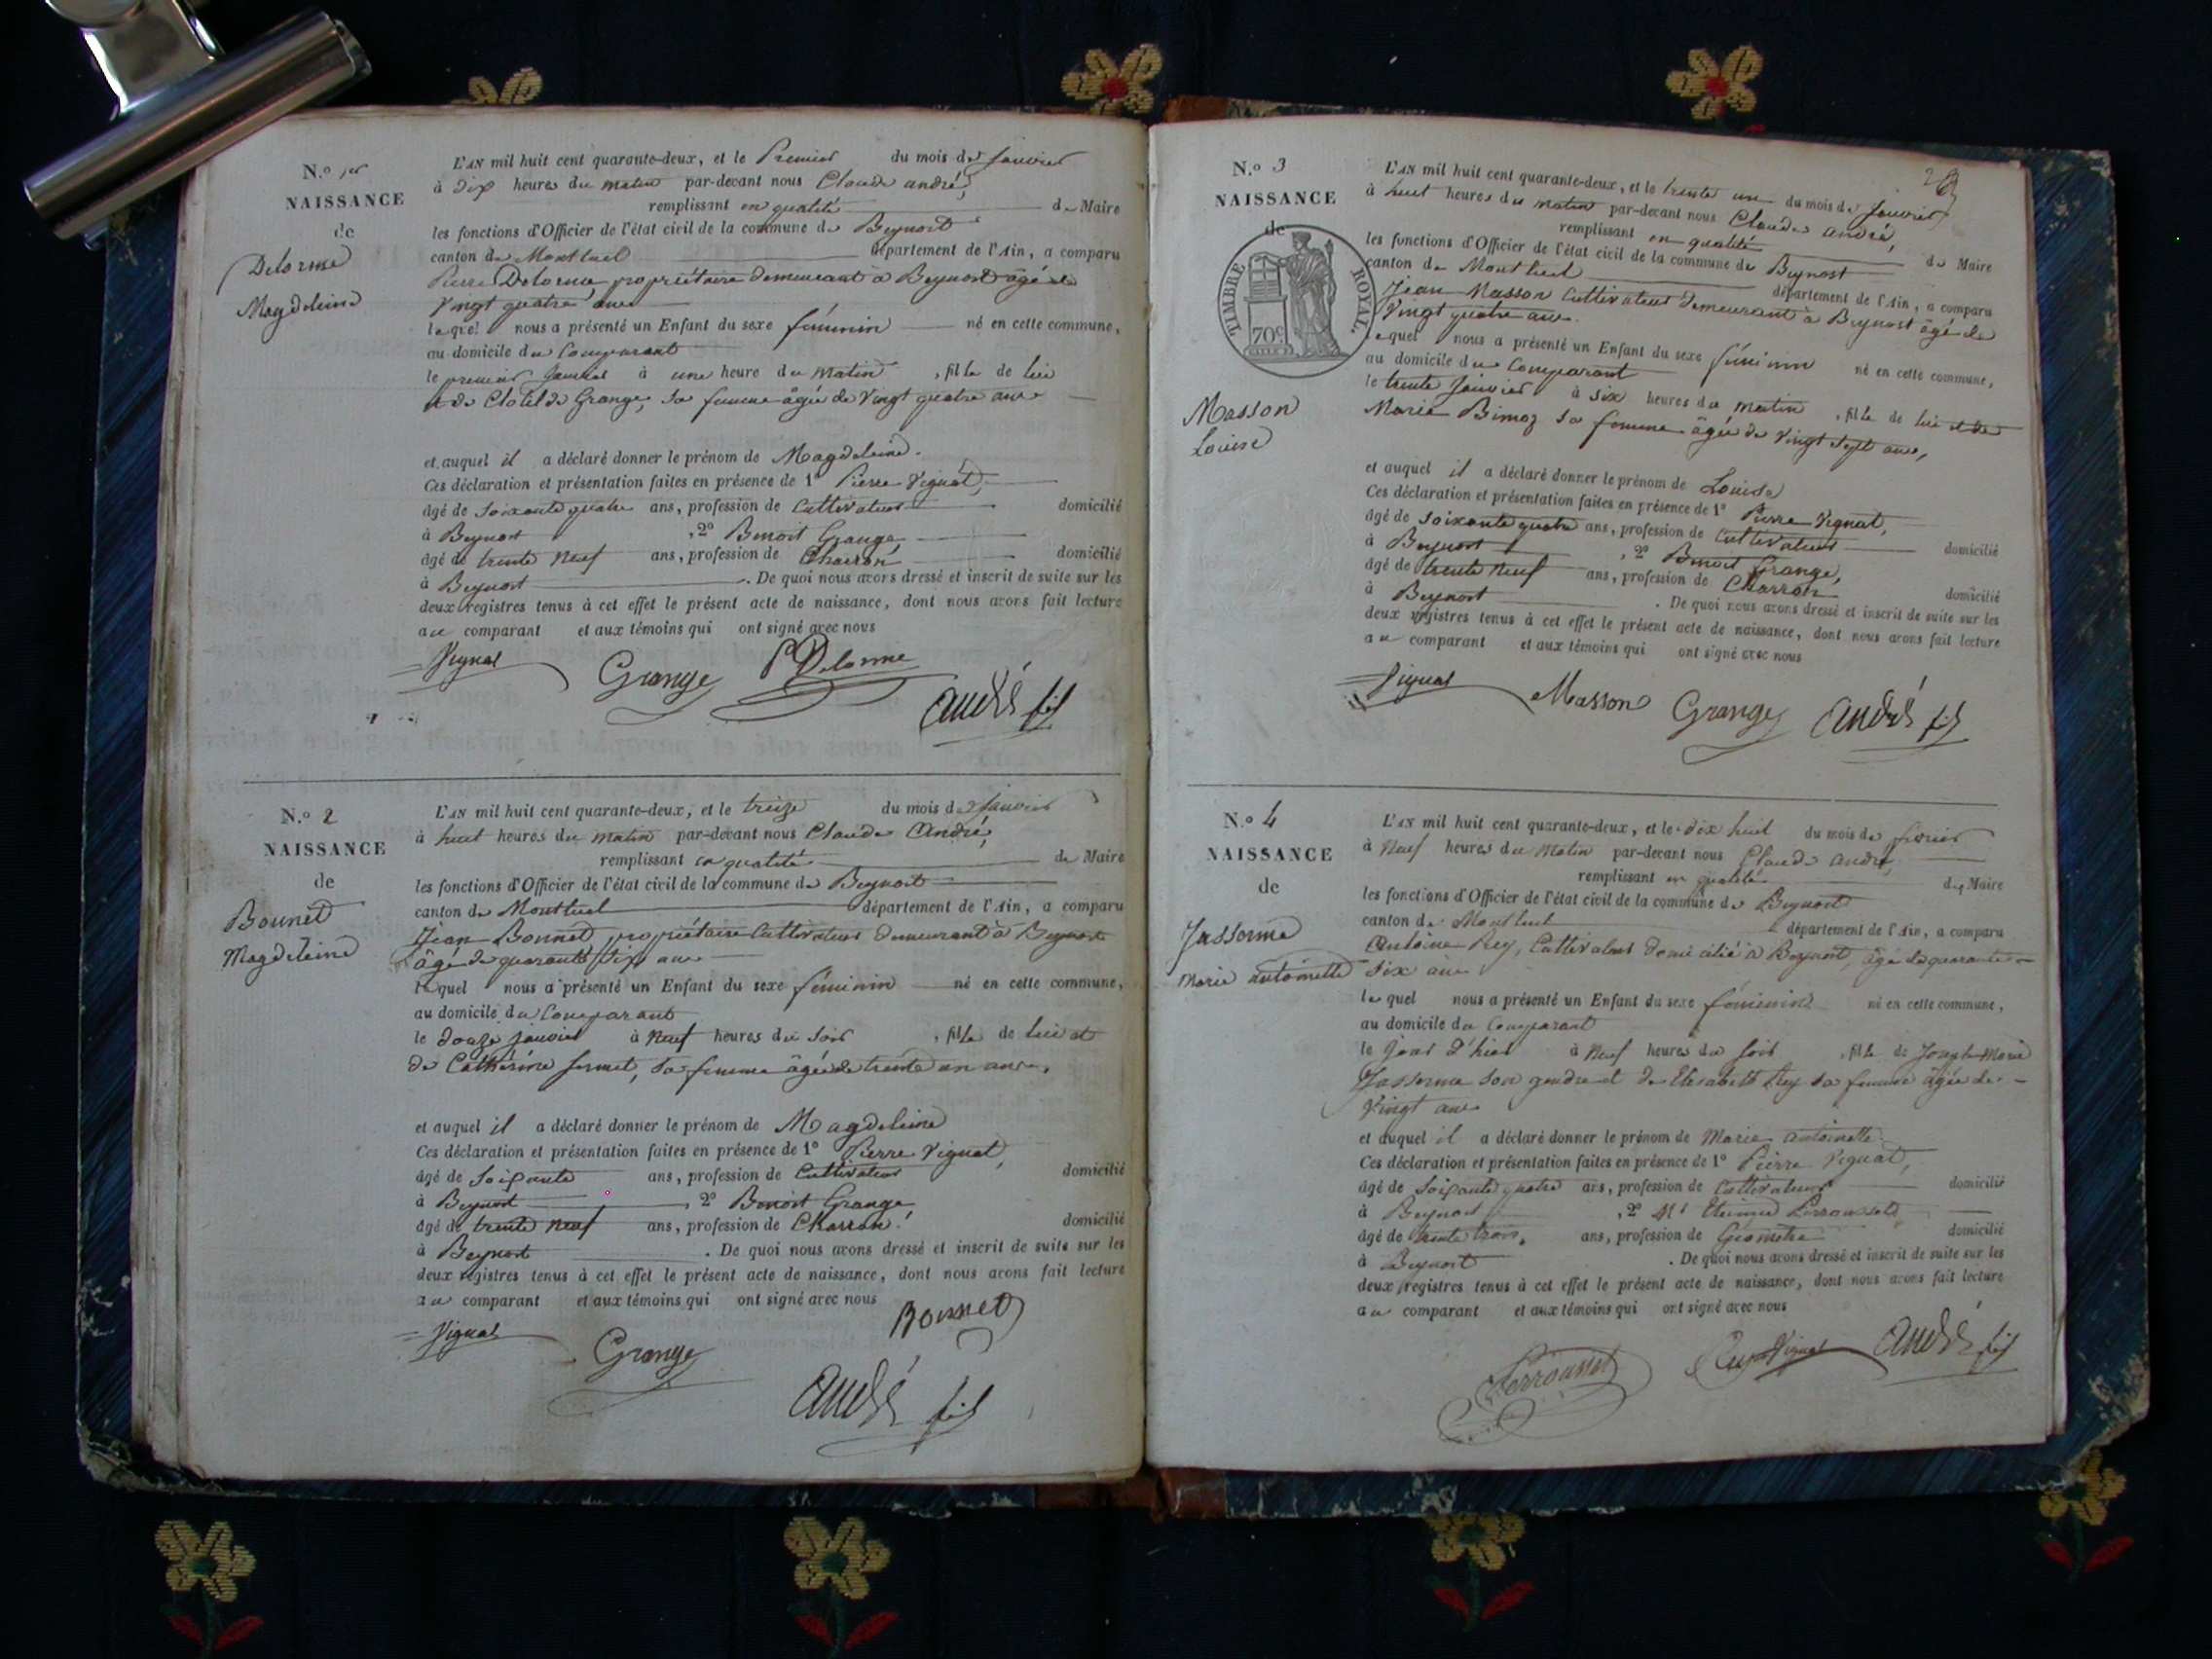 N.o 1er
NAISSANCE
de
Delorme
Magdeleine
L'AN mil huit cent quarante-deux, et le Premier du mois de Janvier
à dix heures du matin par-devant nous Claude andré,
remplissant en qualité de Maire
les fonctions d'Officier de l'état civil de la commune de Beynost
canton de Montluel département de l'Ain, a comparu
Pierre Delorme, propriétaire demeurant à Beynost âgé de
Vingt quatre ans
lequel nous a présenté un Enfant du sexe féminin né en cette commune,
au domicile du Comparant
le premier Janvier à une heure du matin, fille de lui
et de Clotilde Grange, sa femme âgée de Vingt quatre ans
et auquel il a déclaré donner le prénom de Magdeleine.
Ces déclaration et présentation faites en présence de 1° Pierre Vignat,
âgé de Soixante quatre ans, profession de Cultivateur domicilié
à Beynost, 2° Benoit Grange
âgé de trente neuf ans, profession de Charron domicilié
à Beynost. De quoi nous avons dressé et inscrit de suite sur les
deux registres tenus à cet effet le présent acte de naissance, dont nous avons fait lecture
au comparant et aux témoins qui ont signé avec nous
Vignat Grange P Delorme
andré fils
N.o 2
NAISSANCE
de
Bonnet
Magdeleine
L'AN mil huit cent quarante-deux, et le treize du mois de Janvier
à huit heures du matin par-devant nous Claude André,
remplissant en qualité de Maire
les fonctions d'Officier de l'état civil de la commune de Beynost
canton de Montluel département de l'Ain, a comparu
Jean Bonnet propriétaire Cultivateur demeurant à Beynost
âgé de quarante six ans
lequel nous a présenté un Enfant du sexe féminin né en cette commune,
au domicile du Comparant
le douze janvier à neuf heures du soir, fille de lui et
de Cathérine, sa femme âgée de trente un ans,
et auquel il a déclaré donner le prénom de Magdeleine
Ces déclaration et présentation faites en présence de 1° Pierre Vignat,
âgé de Soixante ans, profession de Cultivateur domicilié
à Beynost, 2° Benoit Grange
âgé de trente neuf ans, profession de Charron domicilié
à Beynost. De quoi nous avons dressé et inscrit de suite sur les
deux registres tenus à cet effet le présent acte de naissance, dont nous avons fait lecture
au comparant et aux témoins qui ont signé avec nous
Vignat Grange Bonnet
andré fils
N.o 3
NAISSANCE
de
TIMBRE ROYAL.
70c
Masson
Louise
L'AN mil huit cent quarante-deux, et le trente un du mois de Janvier
à huit heures du matin par-devant nous Claude andré,
remplissant en qualité de Maire
les fonctions d'Officier de l'état civil de la commune de Beynost
canton de Montluel département de l'Ain, a comparu
Jean Masson Cultivateur demeurant à Beynost âgé de
Vingt quatre ans.
lequel nous a présenté un Enfant du sexe féminin né en cette commune,
au domicile du Comparant
le trente Janvier à six heures du matin, fille de lui et de
Marie Bimoz sa femme âgée de Vingt Sept ans,
et auquel il a déclaré donner le prénom de Louise
Ces déclaration et présentation faites en présence de 1° Pierre Vignat,
âgé de soixante quatre ans, profession de Cultivateur domicilié
à Beynost, 2° Benoit Grange,
âgé de trente neuf ans, profession de Charron domicilié
à Beynost. De quoi nous avons dressé et inscrit de suite sur les
deux registres tenus à cet effet le présent acte de naissance, dont nous avons fait lecture
au comparant et aux témoins qui ont signé avec nous
Vignat Masson Grange andré fils
N.o 4
NAISSANCE
de
Jasserme
Marie antoinette
L'AN mil huit cent quarante-deux, et le dix huit du mois de février
à Neuf heures du Matin par-devant nous Claude andré,
remplissant en qualité de Maire
les fonctions d'Officier de l'état civil de la commune de Beynost
canton de Montluel département de l'Ain, a comparu
Antoine Rey, Cultivateur domicilié à Beynost, âgé de quarante
six ans
lequel nous a présenté un Enfant du sexe féminin né en cette commune,
au domicile du Comparant
le Jour d'hier à Neuf heures du Soir, fille de Joseph Marie
Jasserme son gendre et de Elisabeth Rey sa femme âgée de
Vingt ans
et auquel il a déclaré donner le prénom de Marie antoinette.
Ces déclaration et présentation faites en présence de 1° Pierre Vignat,
âgé de Soixante quatre ans, profession de Cultivateur domicilié
à Beynost, 2° Mr Etienne Perrousset,
âgé de trente trois, ans, profession de Géomètre domicilié
à Beynost. De quoi nous avons dressé et inscrit de suite sur les
deux registres tenus à cet effet le présent acte de naissance, dont nous avons fait lecture
au comparant et aux témoins qui ont signé avec nous
Perrousset Rey Vignat andré fils